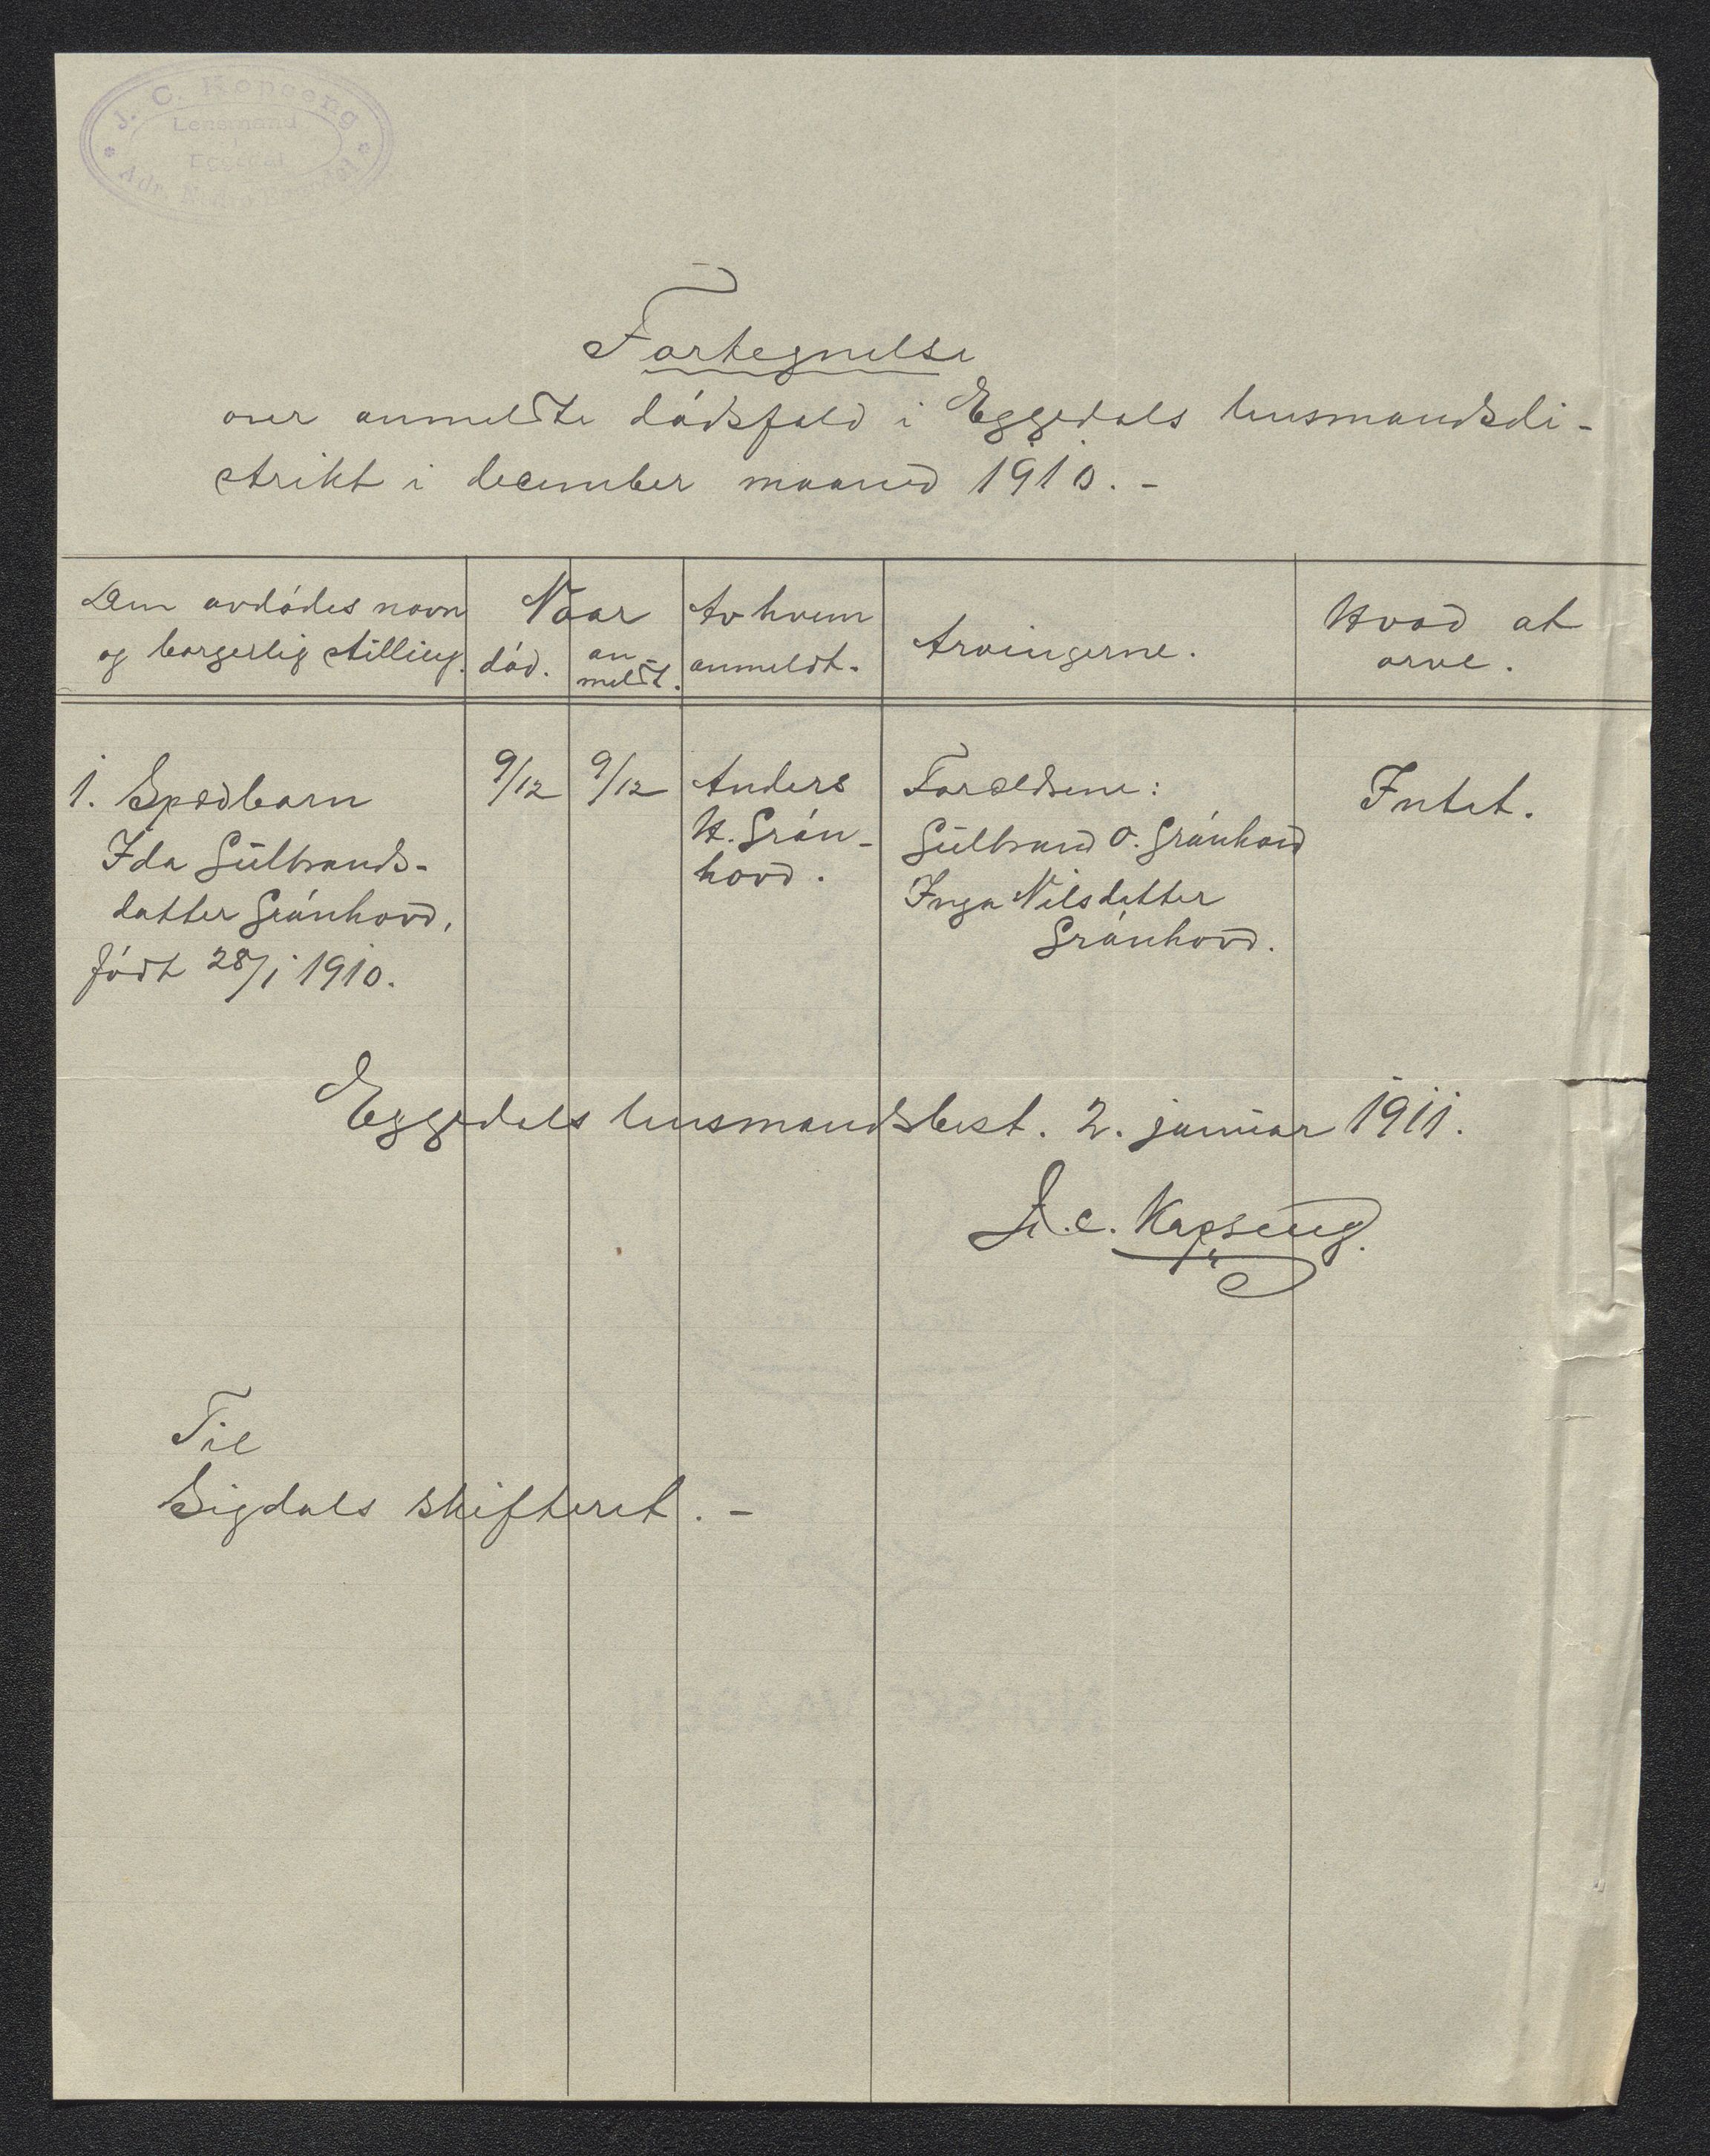 J. C. Kopseng
Lensmand
Eggedal
Fortegnelse
over anmeldte dødsfald i Eggedals lensmandsdi-
strikt i december maaned 1910. -
Den avdødes navn
og borgerlig stilling.
Naar
død.
an-
meldt.
Av hvem
anmeldt.
Arvingerne.
Hvad at
arve.
1. Spædbarn
Ida Gulbrands-
datter Grønhovd,
født 28/1 1910.
9/12
9/12
Anders
H. Grøn-
hovd.
Forældrene:
Gulbrand O. Grønhovd
Inga Nilsdatter
Grønhovd.
Intet.
Eggedals lensmandsbest. 2. januar 1911.
J. C. Kopseng.
Til
Sigdals skifteret. -